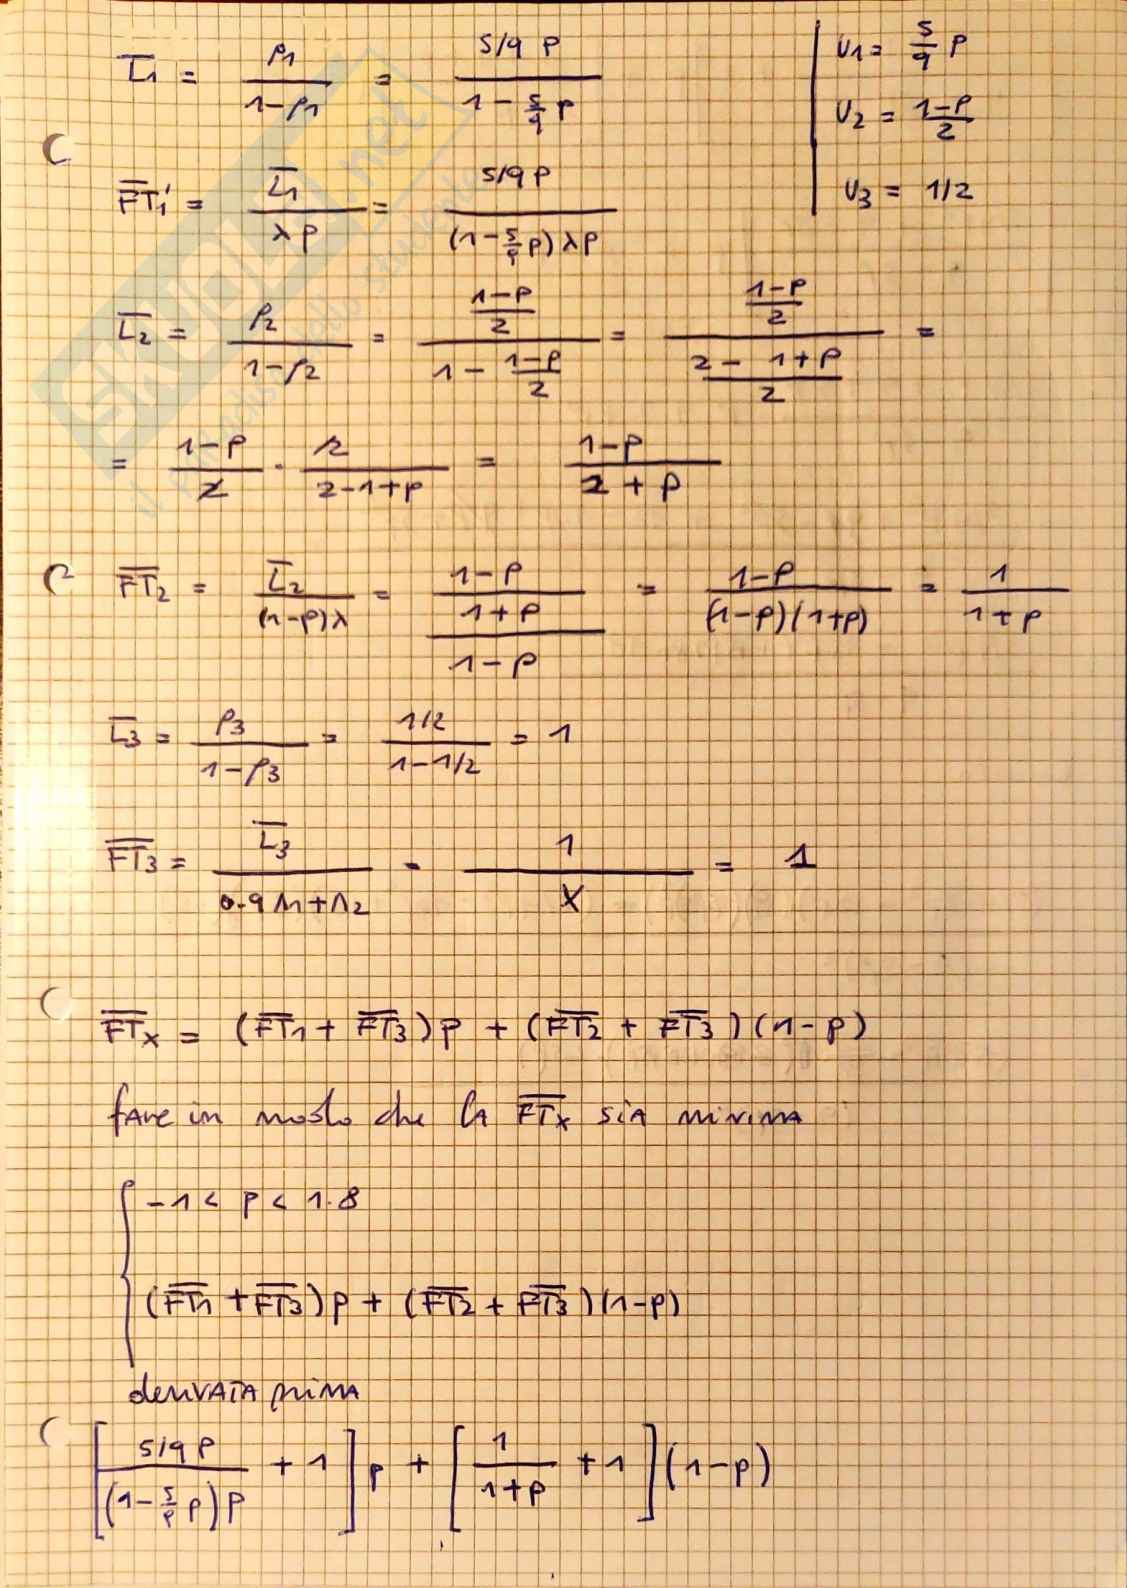 L̄1 = ρ1 / (1-ρ1) = (5/9 p) / (1 - 5/9 p)
U1 = 5/9 p
U2 = (1-p)/2
U3 = 1/2
F̄T̄1' = L̄1 / (λp) = (5/9 p) / ((1-5/9 p) λp)
L̄2 = ρ2 / (1-ρ2) = ((1-p)/2) / (1 - (1-p)/2) = ((1-p)/2) / ((2 - 1+p)/2) =
= (1-p)/2 · 2/(2-1+p) = (1-p)/(2+p)
F̄T̄2 = L̄2 / ((1-p)λ) = ((1-p)/(1+p)) / (1-p) = (1-p) / ((1-p)(1+p)) = 1/(1+p)
L̄3 = ρ3 / (1-ρ3) = (1/2) / (1-1/2) = 1
F̄T̄3 = L̄3 / (0.9 λ1+λ2) = 1/λ = 1
F̄T̄x = (F̄T̄1 + F̄T̄3)p + (F̄T̄2 + F̄T̄3)(1-p)
fare in modo che la F̄T̄x sia minima
{ -1 < p < 1.8
(F̄T̄1 + F̄T̄3)p + (F̄T̄2 + F̄T̄3)(1-p)
derivata prima
[(5/9 p) / ((1-5/9 p)p) + 1] p + [1/(1+p) + 1] (1-p)
SKUOLA.net